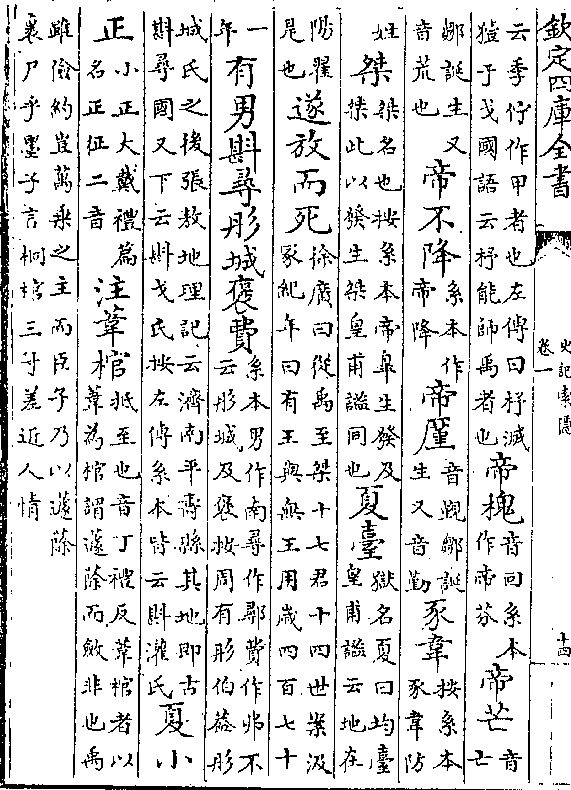 欽定四庫全書
史記索隱
卷一
十四
云季佇作甲者也左傳曰杼滅
豷于戈國語云杼能師禹者也
帝槐
音回系本
作帝芬
帝芒
音
亡
鄒誕生又
音荒也
帝不降
系本作
帝降
帝廑
音覲鄒誕
生又音勤
豕韋
按系本
豕韋防
姓
桀
桀名也按系本帝臯生發及
桀此以發生桀皇甫謐同也
夏臺
獄名夏曰均臺
皇甫謐云地在
陽翟
是也
遂放而死
徐廣曰從禹至桀十七君十四世案汲
冢紀年曰有王與無王用歲四百七十
一
年
有男斟尋彤城褒費
系本男作南尋作鄩費作弗不
云彤城及褒按周有彤伯蓋彤
城氏之後張敖地理記云濟南平壽縣其地即古
斟尋國又下云斟戈氏按左傳系本皆云斟灌氏
夏小
正
小正大戴禮篇
名正征二音
注葦棺
抵至也音丁禮反葦棺者以
葦為棺謂蘧除而斂非也禹
雖儉約豈萬乘之主而臣子乃以蘧除
裹尸乎墨子言桐棺三寸差近人情